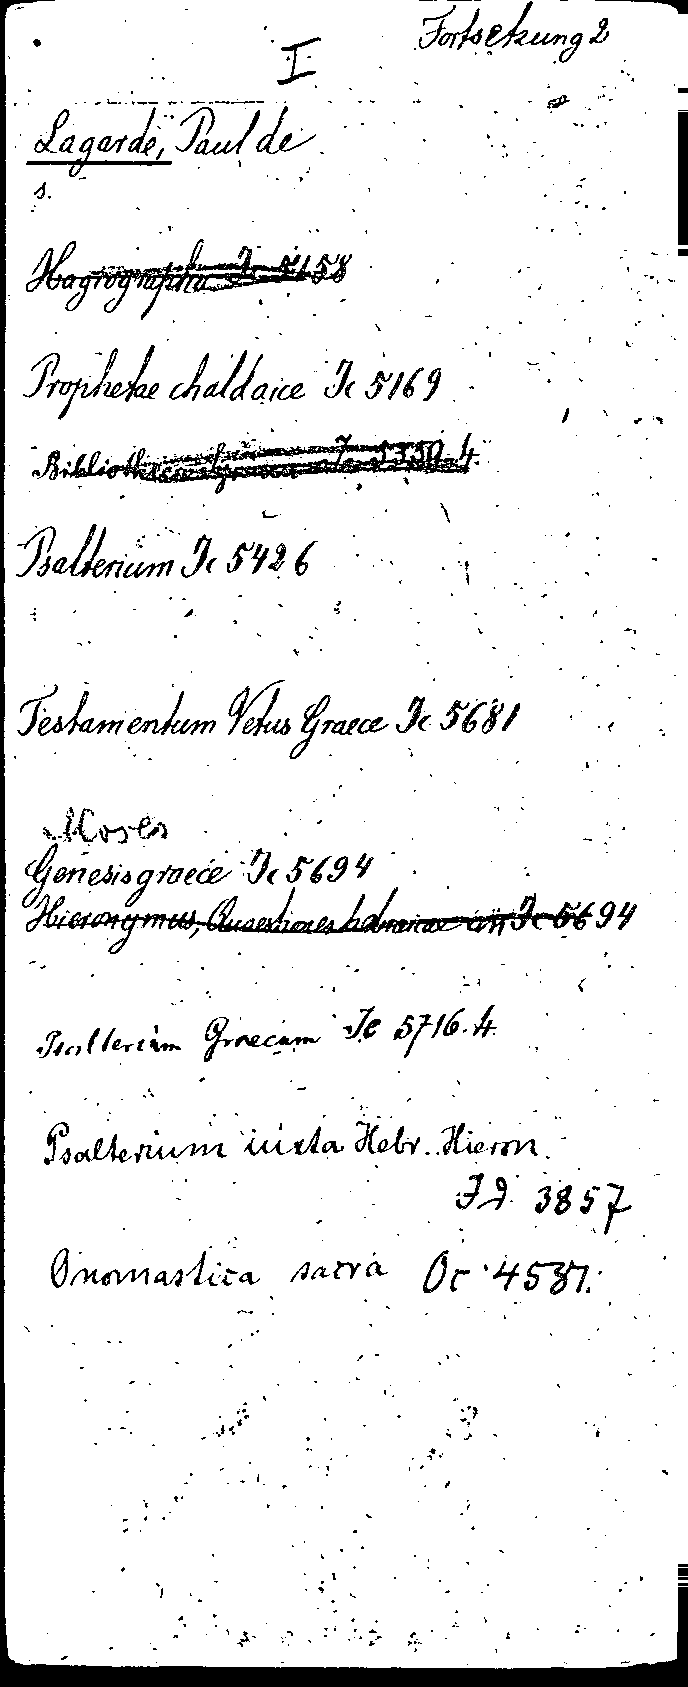 Fortsetzung 2
I
Lagarde, Paul de
s.
Hagiographa Ic 5158
Prophetae chaldaice Ic 5169
Ic 5350.4
Psalterium Ic 5426
Testamentum Vetus Graece Ic 5681
Moses
Genesis graece Ic 5694
Hieronymus, Quaestiones hebraicae in Ic 5694
Psalterium Graecum Ic 5716.4
Psalterium iuxta Hebr. Hieron.
Id 3857
Onomastica sacra Oc 4587.